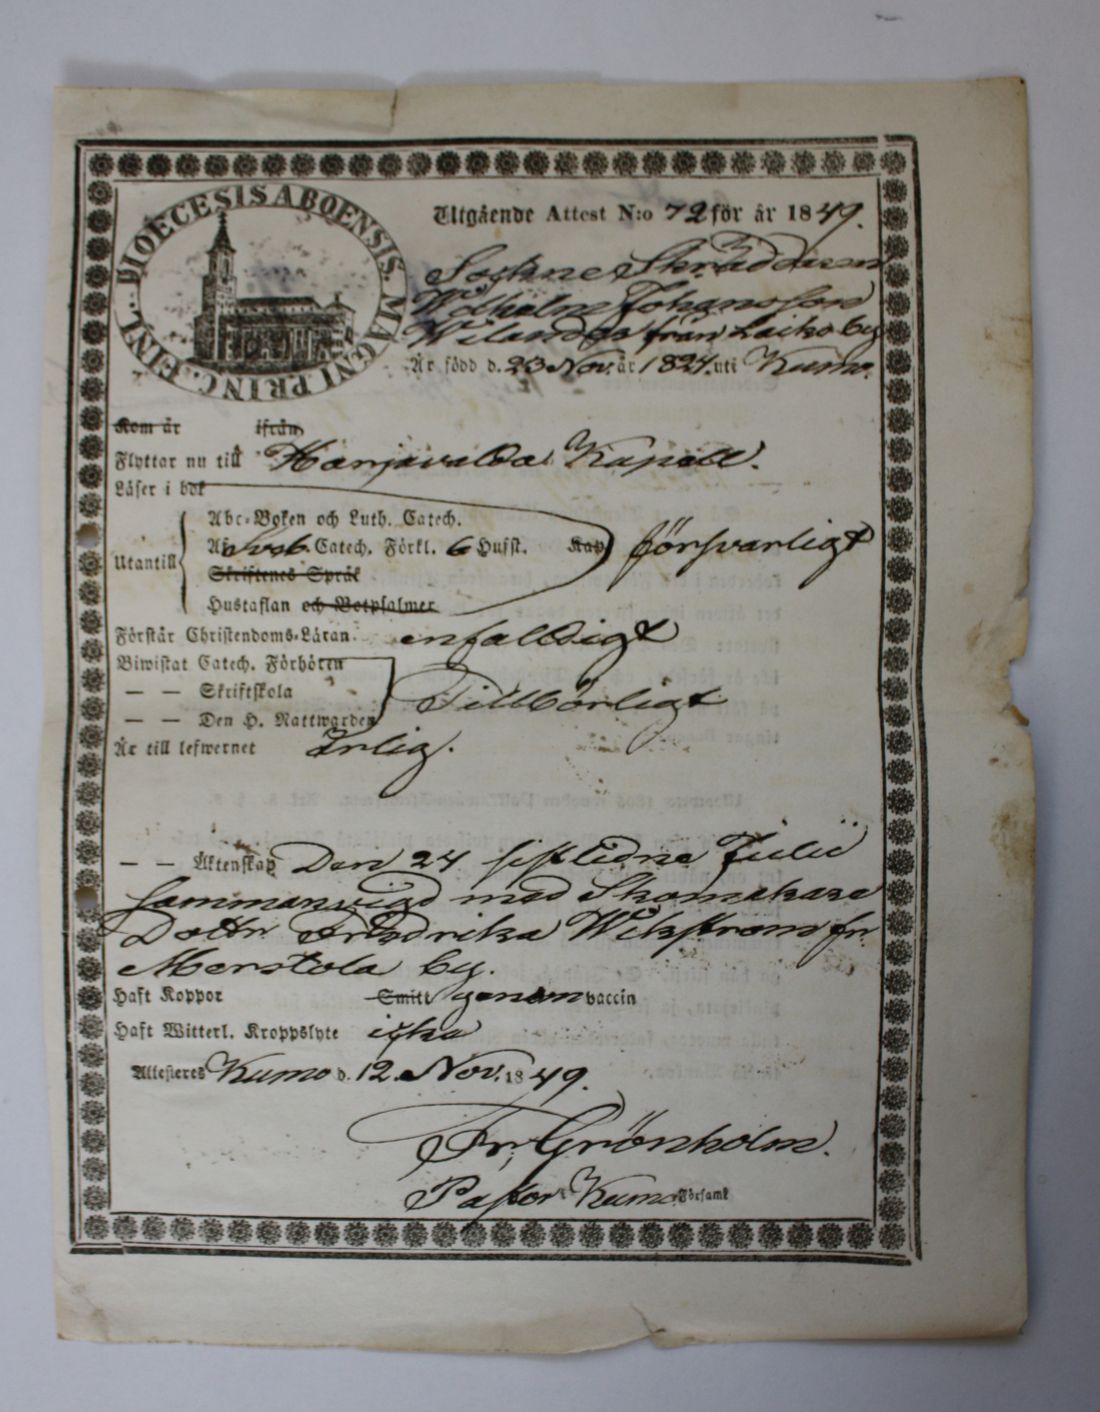 DIOECESIS ABOENSIS. MAGNI PRINC. FINL.
Utgående Attest N:o 72 för år 1849.
Sockne Skräddaren
Wilhelm Johansson
Wilander från Laiko by
Är född d. 23 Nov. år 1824. uti Kumo.
Kom år ifrån
Flyttar nu till Harjavalda Kapell.
Läser i bok
Abc-Boken och Luth. Catech.
Utantill Catech. Förkl. 6 Husst. Kap. försvarligt
Skriftenes Språk
Hustaflan och Botpsalmer
Förstår Christendoms-Läran enfalldigt
Biwistat Catech. Förhören
— — Skriftskola Tillbörligt
— — Den H. Nattwarden
Är till lefwernet Ärlig.
— — Äktenskap Den 24 sistledne Julii
sammanvigd med Skomakare
Dottr Fredrika Wikström fr.
Merstola by.
Haft Koppor Smitt genom vaccin
Haft Witterl. Kroppslyte icke
Attesteres Kumo d. 12. Nov. 1849.
Fr. Grönholm.
Pastor i Kumo Församl